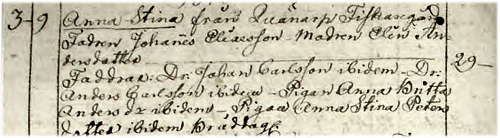 3-9 Anna Stina från Quänarp
Fadren Johanes Eliaesson Modren Elin An-
dersdatter 29-
Faddrar: Dr. Johan Carlsson ibidem - Dr.
Anders Carlsson ibidem - Pigan Anna Britta
Anders dr ibidem - Pigan Anna Stina Peters
dotter ibidem